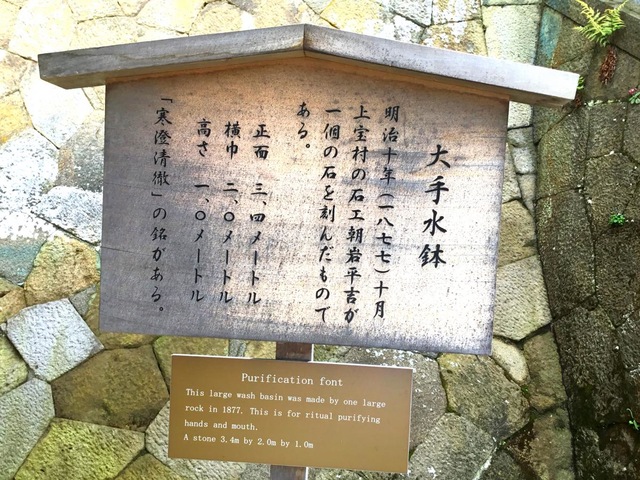 大手水鉢
明治十年(一八七七)十月
上宝村の石工朝岩平吉が
一個の石を刻んだもので
ある。
正面 三、四メートル
横巾 二、〇メートル
高さ 一、〇メートル
「寒澄清徹」の銘がある。
Purification font
This large wash basin was made by one large
rock in 1877. This is for ritual purifying
hands and mouth.
A stone 3.4m by 2.0m by 1.0m